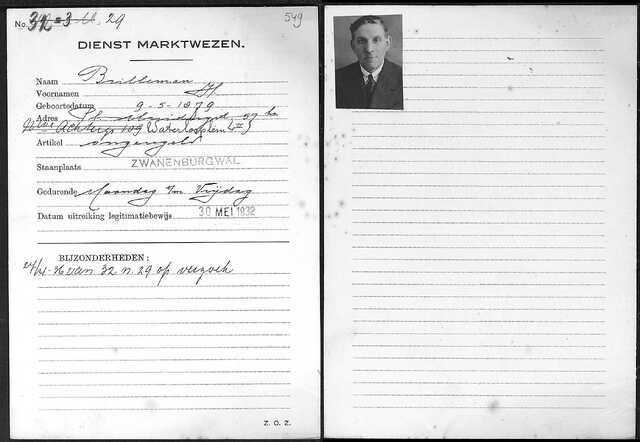 No. 29
549
DIENST MARKTWEZEN.
Naam Brilleman
Voornamen H
Geboortedatum 9-5-1879
Adres St.
Achterg 109 Waterlooplein
Artikel ongeregeld
Staanplaats ZWANENBURGWAL
Gedurende Maandag t/m Vrijdag
Datum uitreiking legitimatiebewijs 30 MEI 1932
BIJZONDERHEDEN:
van 32 n. 29 op verzoek
Z. O. Z.